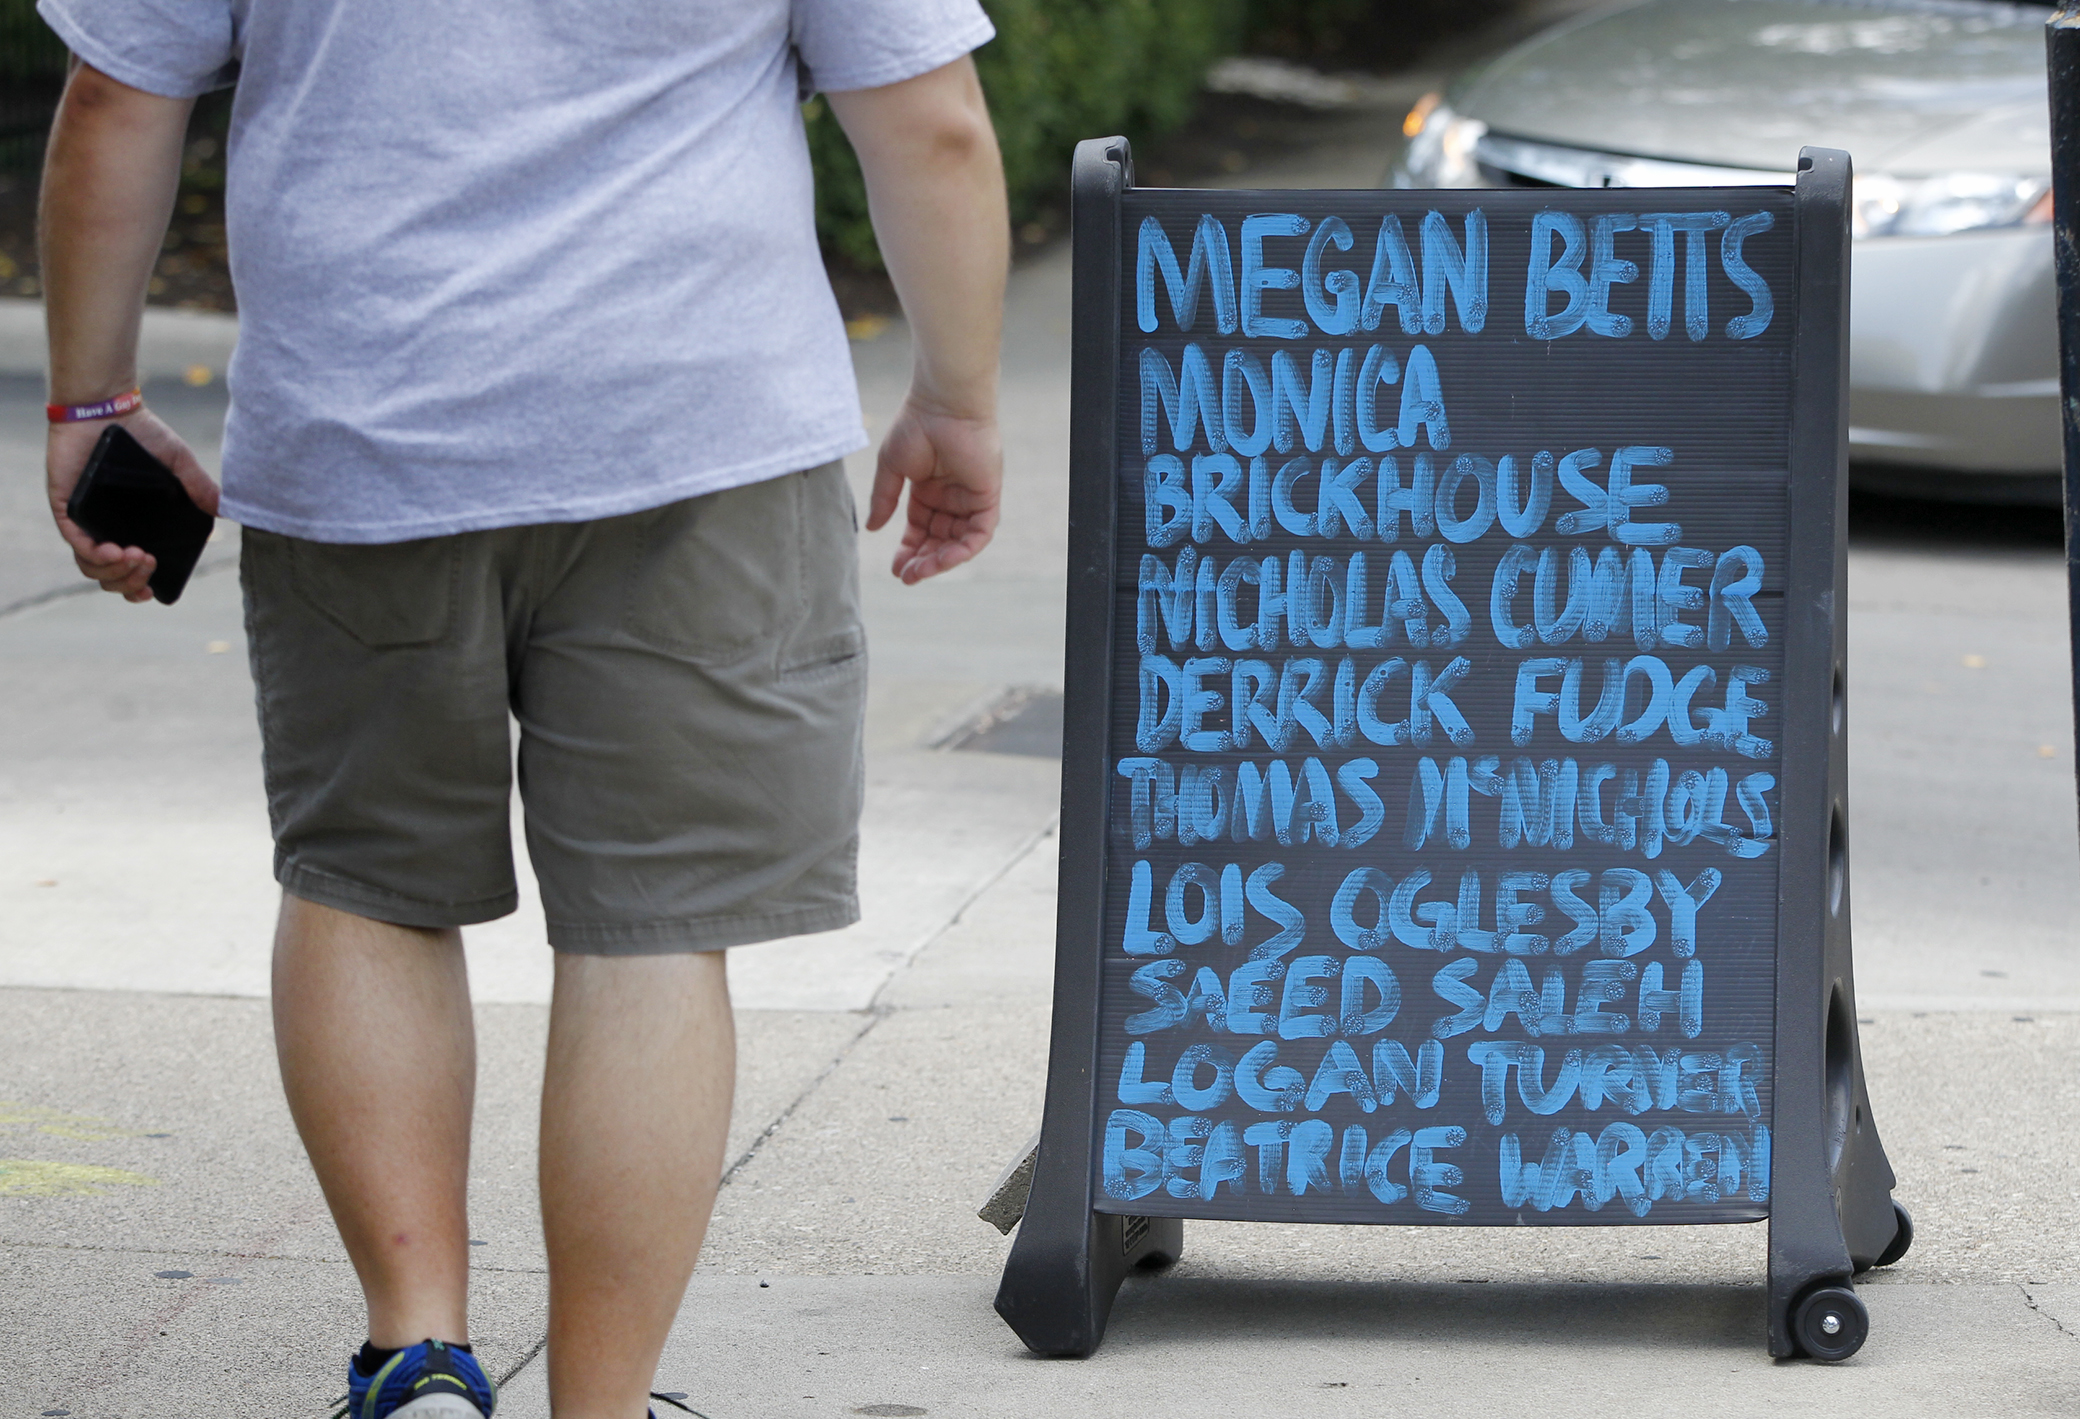 Have A Gay
MEGAN BETTS
MONICA
BRICKHOUSE
NICHOLAS CUMER
DERRICK FUDGE
THOMAS McNICHOLS
LOIS OGLESBY
SAEED SALEH
LOGAN TURNER
BEATRICE WARREN